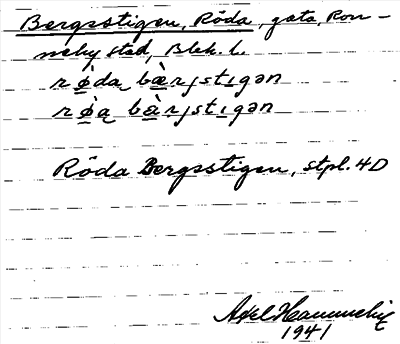 Bergsstigen, Röda, gata, Ron-
neby stad, Blek. l.
rø̀da bæ̀rjstıgən
rø̀a bæ̀rjstıgən
Röda Bergsstigen, stpl. 4D
Axel
1941